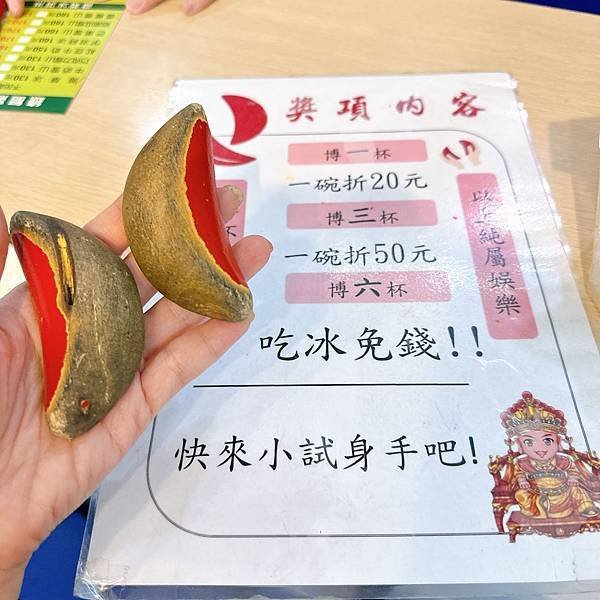 獎項內容
博一杯
一碗折20元
博三杯
一碗折50元
博六杯
吃冰免錢!!
快來小試身手吧!
純屬娛樂
杯